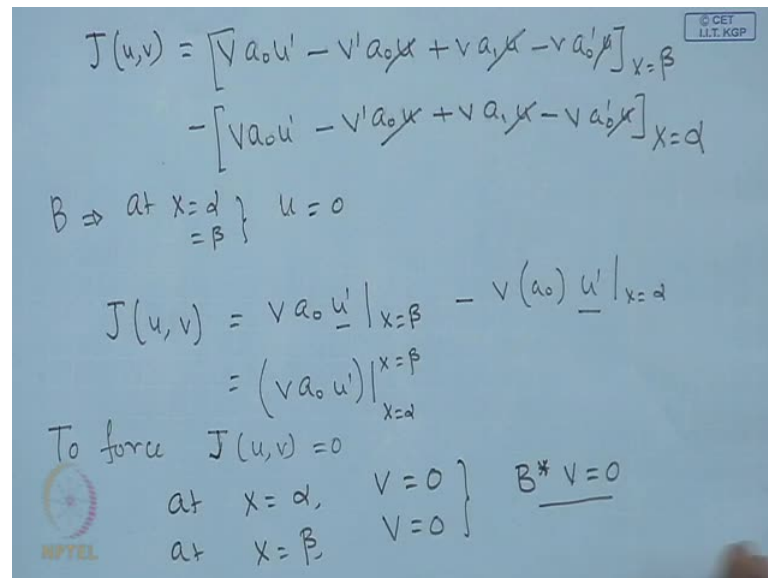 © CET
I.I.T. KGP
J(u,v) = [v a₀u' - v'a₀u + v a₁u - v a₀'u]ₓ₌β
-[v a₀u' - v'a₀u + v a₁u - v a₀'u]ₓ₌α
B ⇒ at x = α } u = 0
= β
J(u,v) = v a₀ u'|ₓ₌β - v(a₀) u'|ₓ₌α
= (v a₀ u')|ₓ₌α^{x=β}
To force J(u,v) = 0
at x = α, v = 0 } B* v = 0
at x = β, v = 0
NPTEL